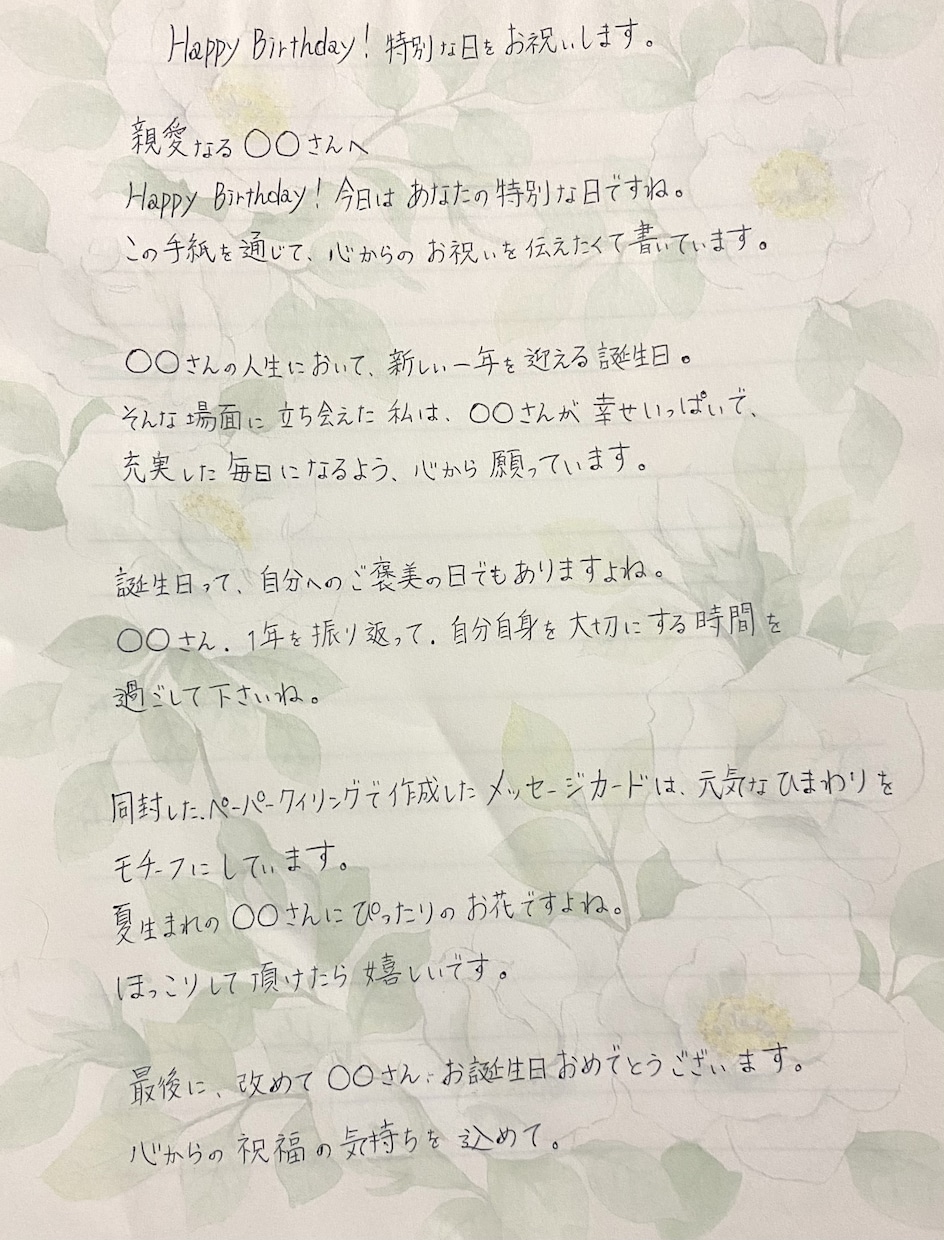 Happy Birthday! 特別な日をお祝いします。
親愛なる〇〇さんへ
Happy Birthday! 今日はあなたの特別な日ですね。
この手紙を通じて、心からのお祝いを伝えたくて書いています。
〇〇さんの人生において、新しい一年を迎える誕生日。
そんな場面に立ち会えた私は、〇〇さんが幸せいっぱいで、
充実した毎日になるよう、心から願っています。
誕生日って、自分へのご褒美の日でもありますよね。
〇〇さん、1年を振り返って、自分自身を大切にする時間を
過ごして下さいね。
同封した、ペーパークイリングで作成したメッセージカードは、元気なひまわりを
モチーフにしています。
夏生まれの〇〇さんにぴったりのお花ですよね。
ほっこりして頂けたら嬉しいです。
最後に、改めて〇〇さん、お誕生日おめでとうございます。
心からの祝福の気持ちを込めて。